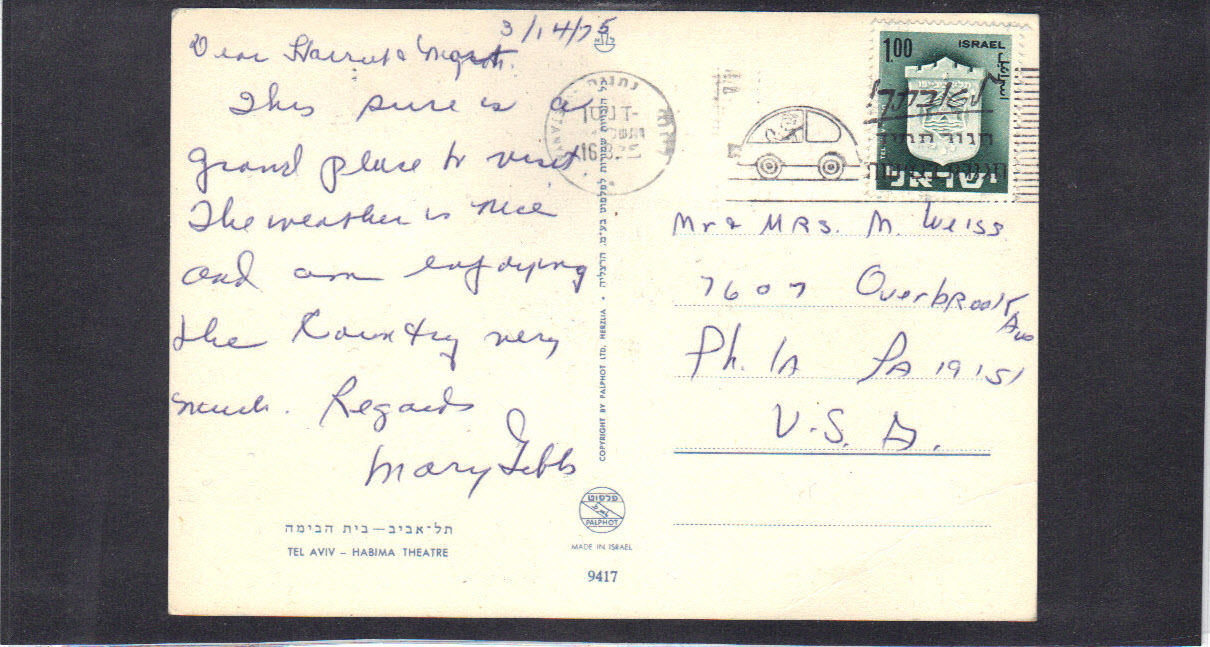 3/14/75
Dear Harriet &
This sure is a
grand place to visit
The weather is nice
and am enjoying
the Country very
much. Regards
Mary Gibbs
תל־אביב – בית הבימה
TEL AVIV – HABIMA THEATRE
COPYRIGHT BY PALPHOT LTD. HERZLIA • כל הזכויות שמורות לפלפוט בע"מ. הרצליה
פלפוט
PALPHOT
MADE IN ISRAEL
9417
נתניה
1.00 ISRAEL
اسرائيل
ישראל
Mr & MRS. M. Weiss
7607 Overbrook Ave
Phila PA 19151
U.S.A.